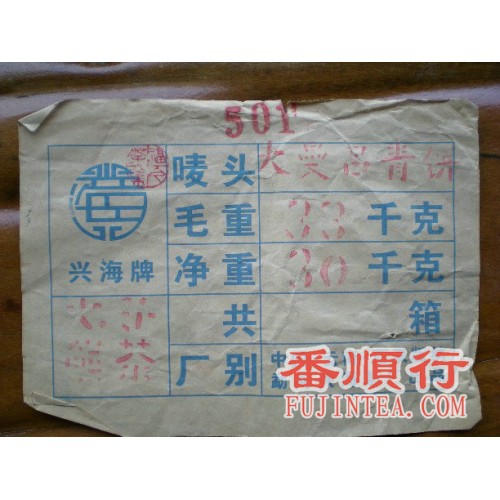 501
唛头 大曼吕青饼
毛重 33 千克
兴海牌 净重 30 千克
共 箱
普洱
紧茶
厂别 中
勐
番順行
FUJINTEA.COM